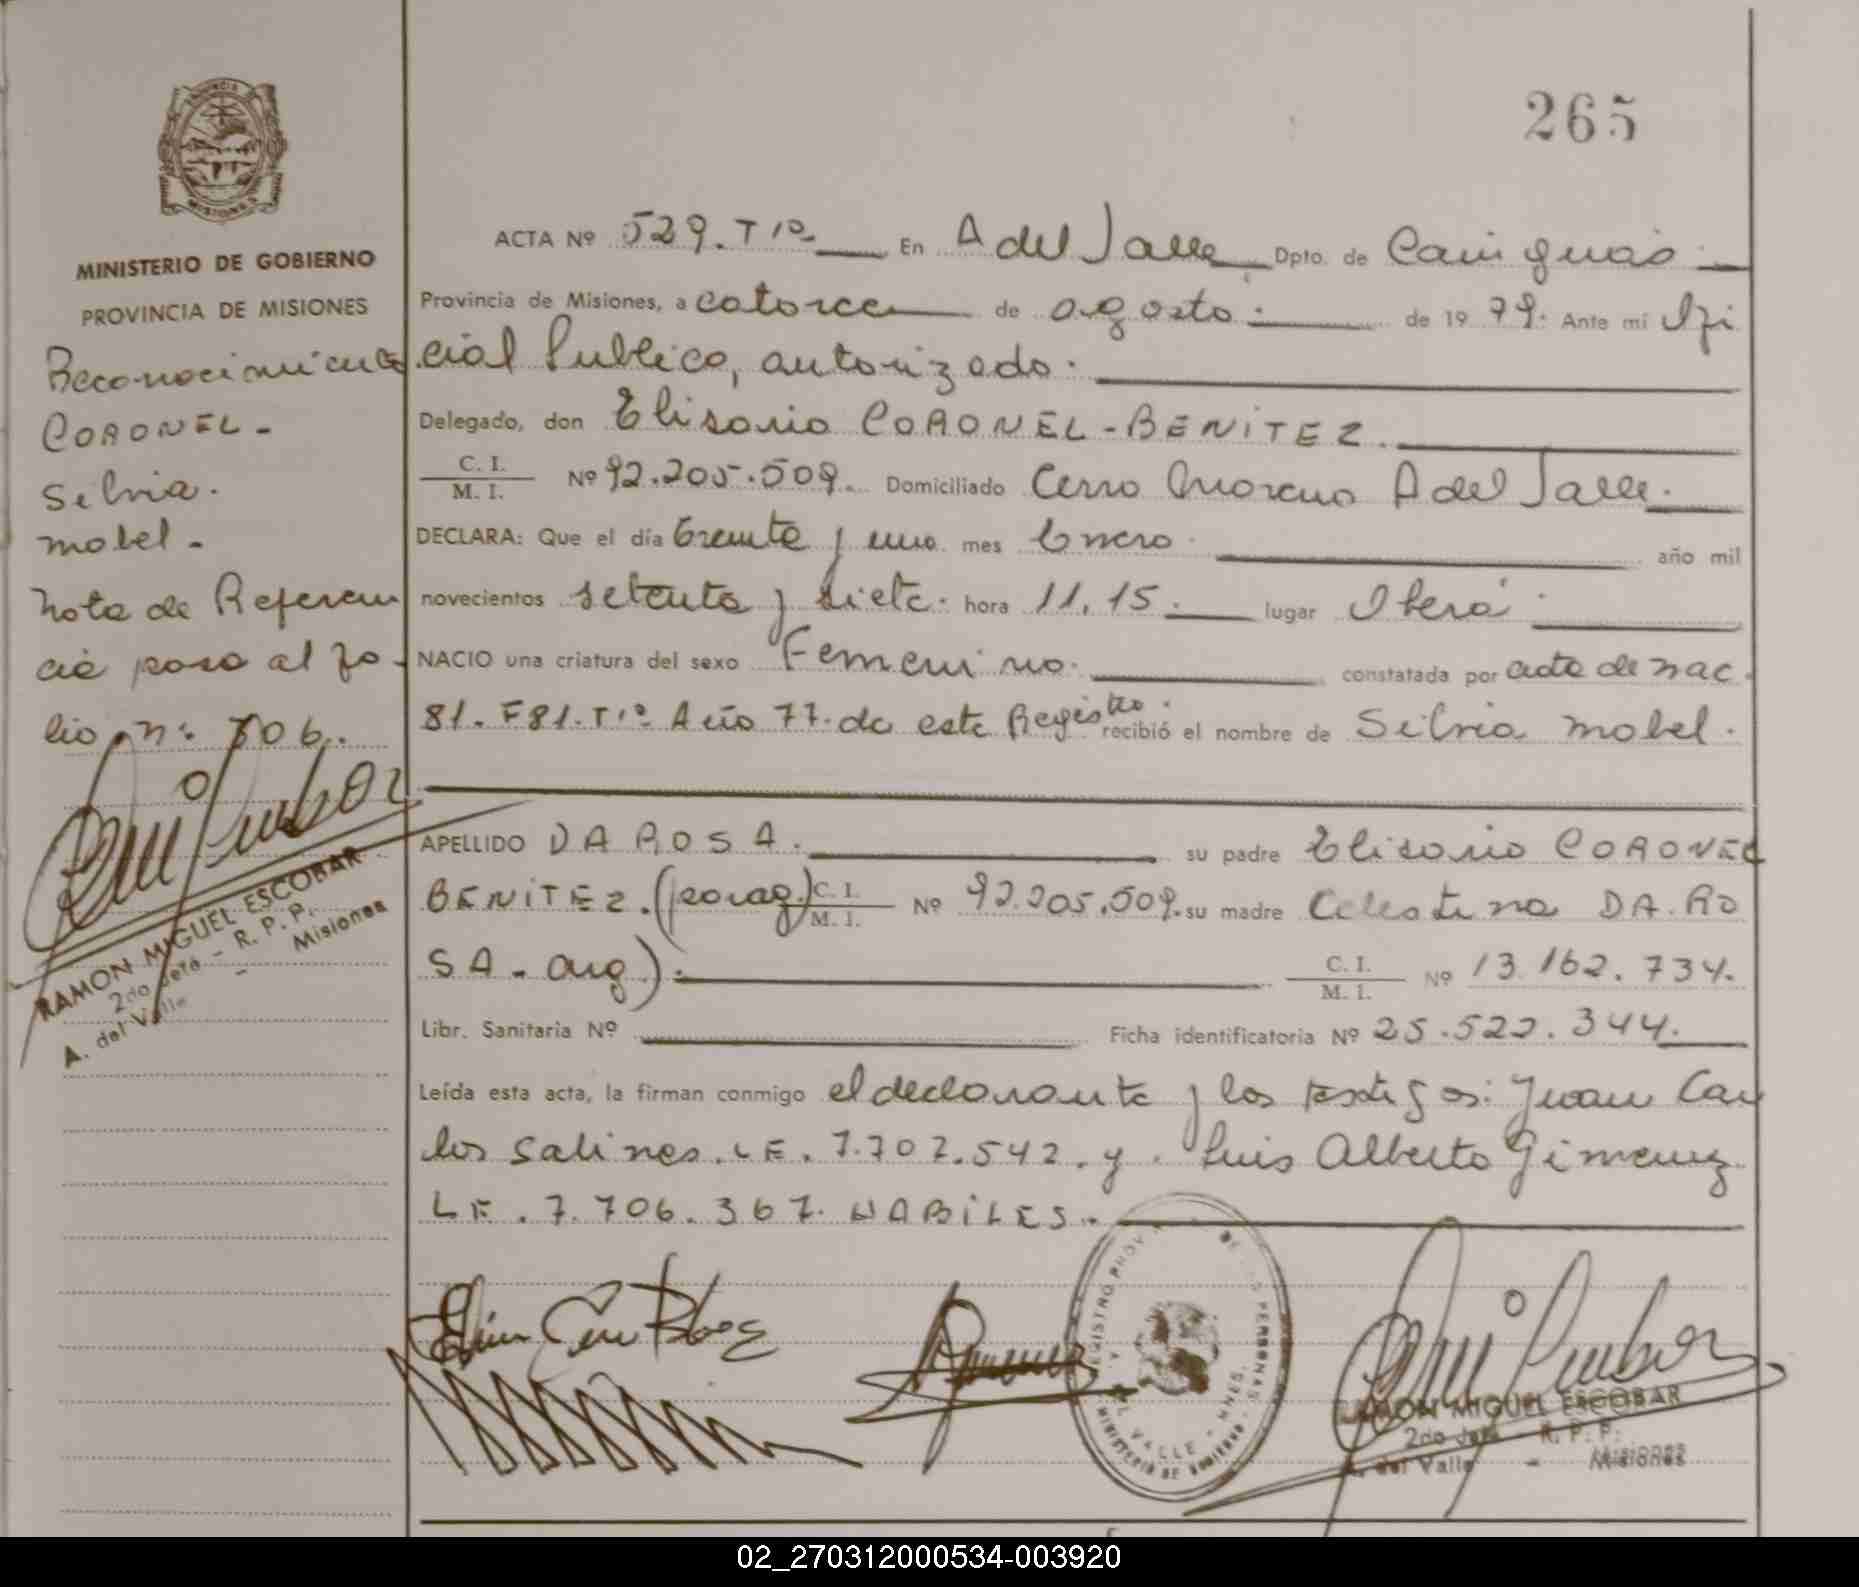 265
MINISTERIO DE GOBIERNO
PROVINCIA DE MISIONES
Reconocimiento
CORONEL -
Silvia.
mabel -
Nota de Referen
cia paso al fo -
lio nº 706.
RAMON MIGUEL ESCOBAR
2do Jefe - R. P. P.
A. del Valle - Misiones
ACTA Nº 529. Tº En A del Valle Dpto. de Cainguás
Provincia de Misiones, a catorce de agosto de 1979. Ante mí Ofi
cial Publico, autorizado.
Delegado, don Elisario CORONEL - BENITEZ.
C. I.
M. I. Nº 92.205.509. Domiciliado Cerro Moreno A del Valle.
DECLARA: Que el día treinta y uno mes Enero año mil
novecientos setenta y siete. hora 11.15. lugar Oberá
NACIO una criatura del sexo Femenino. constatada por acta de nac.
81. F81. T1º Año 77. de este Registro. recibió el nombre de Silvia mabel.
APELLIDO DA ROSA. su padre Elisario CORONEL
BENITEZ. (parag) C. I.
M. I. Nº 92.205.509. su madre Celestina DA. RO
SA - arg). C. I.
M. I. Nº 13.162.734.
Libr. Sanitaria Nº Ficha identificatoria Nº 25.522.344.
Leída esta acta, la firman conmigo el declarante y los testigos: Juan Car
los Salines. LE. 7.707.542. y Luis Alberto Gimenez
LE. 7.706.367. HABILES.
RAMON MIGUEL ESCOBAR
2do Jefe - R. P. P.
A. del Valle - Misiones
02_270312000534-003920